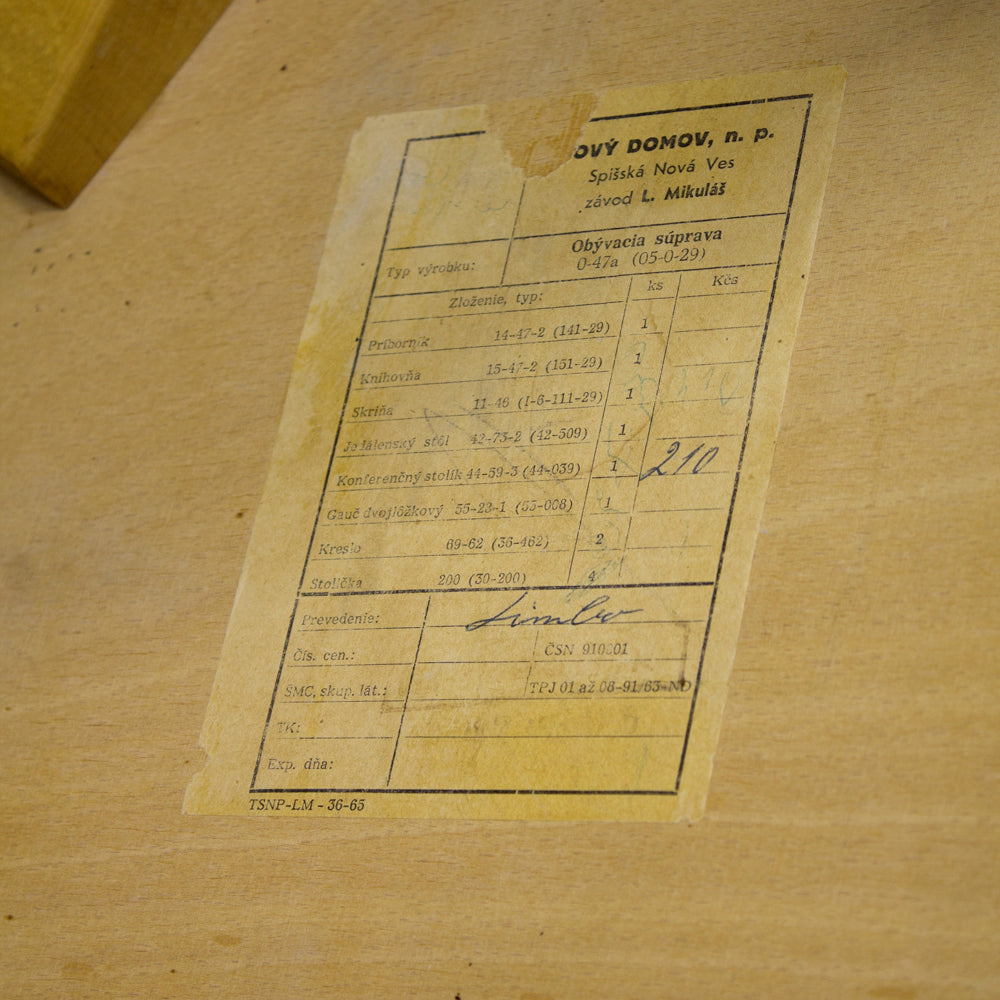 OVÝ DOMOV, n. p.
Spišská Nová Ves
závod L. Mikuláš
Typ výrobku:
Obývacia súprava
0-47a (05-0-29)
Zloženie, typ: ks Kčs
Príborník 14-47-2 (141-29) 1
Knihovňa 15-47-2 (151-29) 1
Skriňa 11-46 (1-6-111-29) 1
Jedálenský stôl 42-73-2 (42-509) 1
Konferenčný stolík 44-59-3 (44-039) 1 210
Gauč dvojlôžkový 55-23-1 (55-008) 1
Kreslo 69-62 (36-462) 2
Stolička 200 (30-200) 4
Prevedenie:
Čís. cen.: ČSN 910001
ŠMC, skup. lát.: TPJ 01 až 06-91/63-ND
TK:
Exp. dňa:
TSNP-LM - 36-65